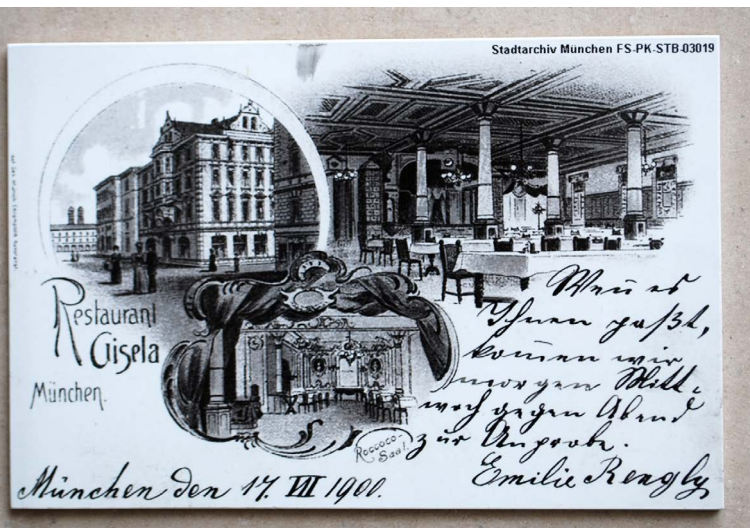 Stadtarchiv München FS-PK-STB-03019
Restaurant
Gisela
München.
Roccoco-
Saal
Wen̄ es
Ihnen paßt,
kom̄en wir
morgen Mitt-
woch gegen Abend
zur Anprobe.
Emilie Rengly
München den 17. VII 1900.